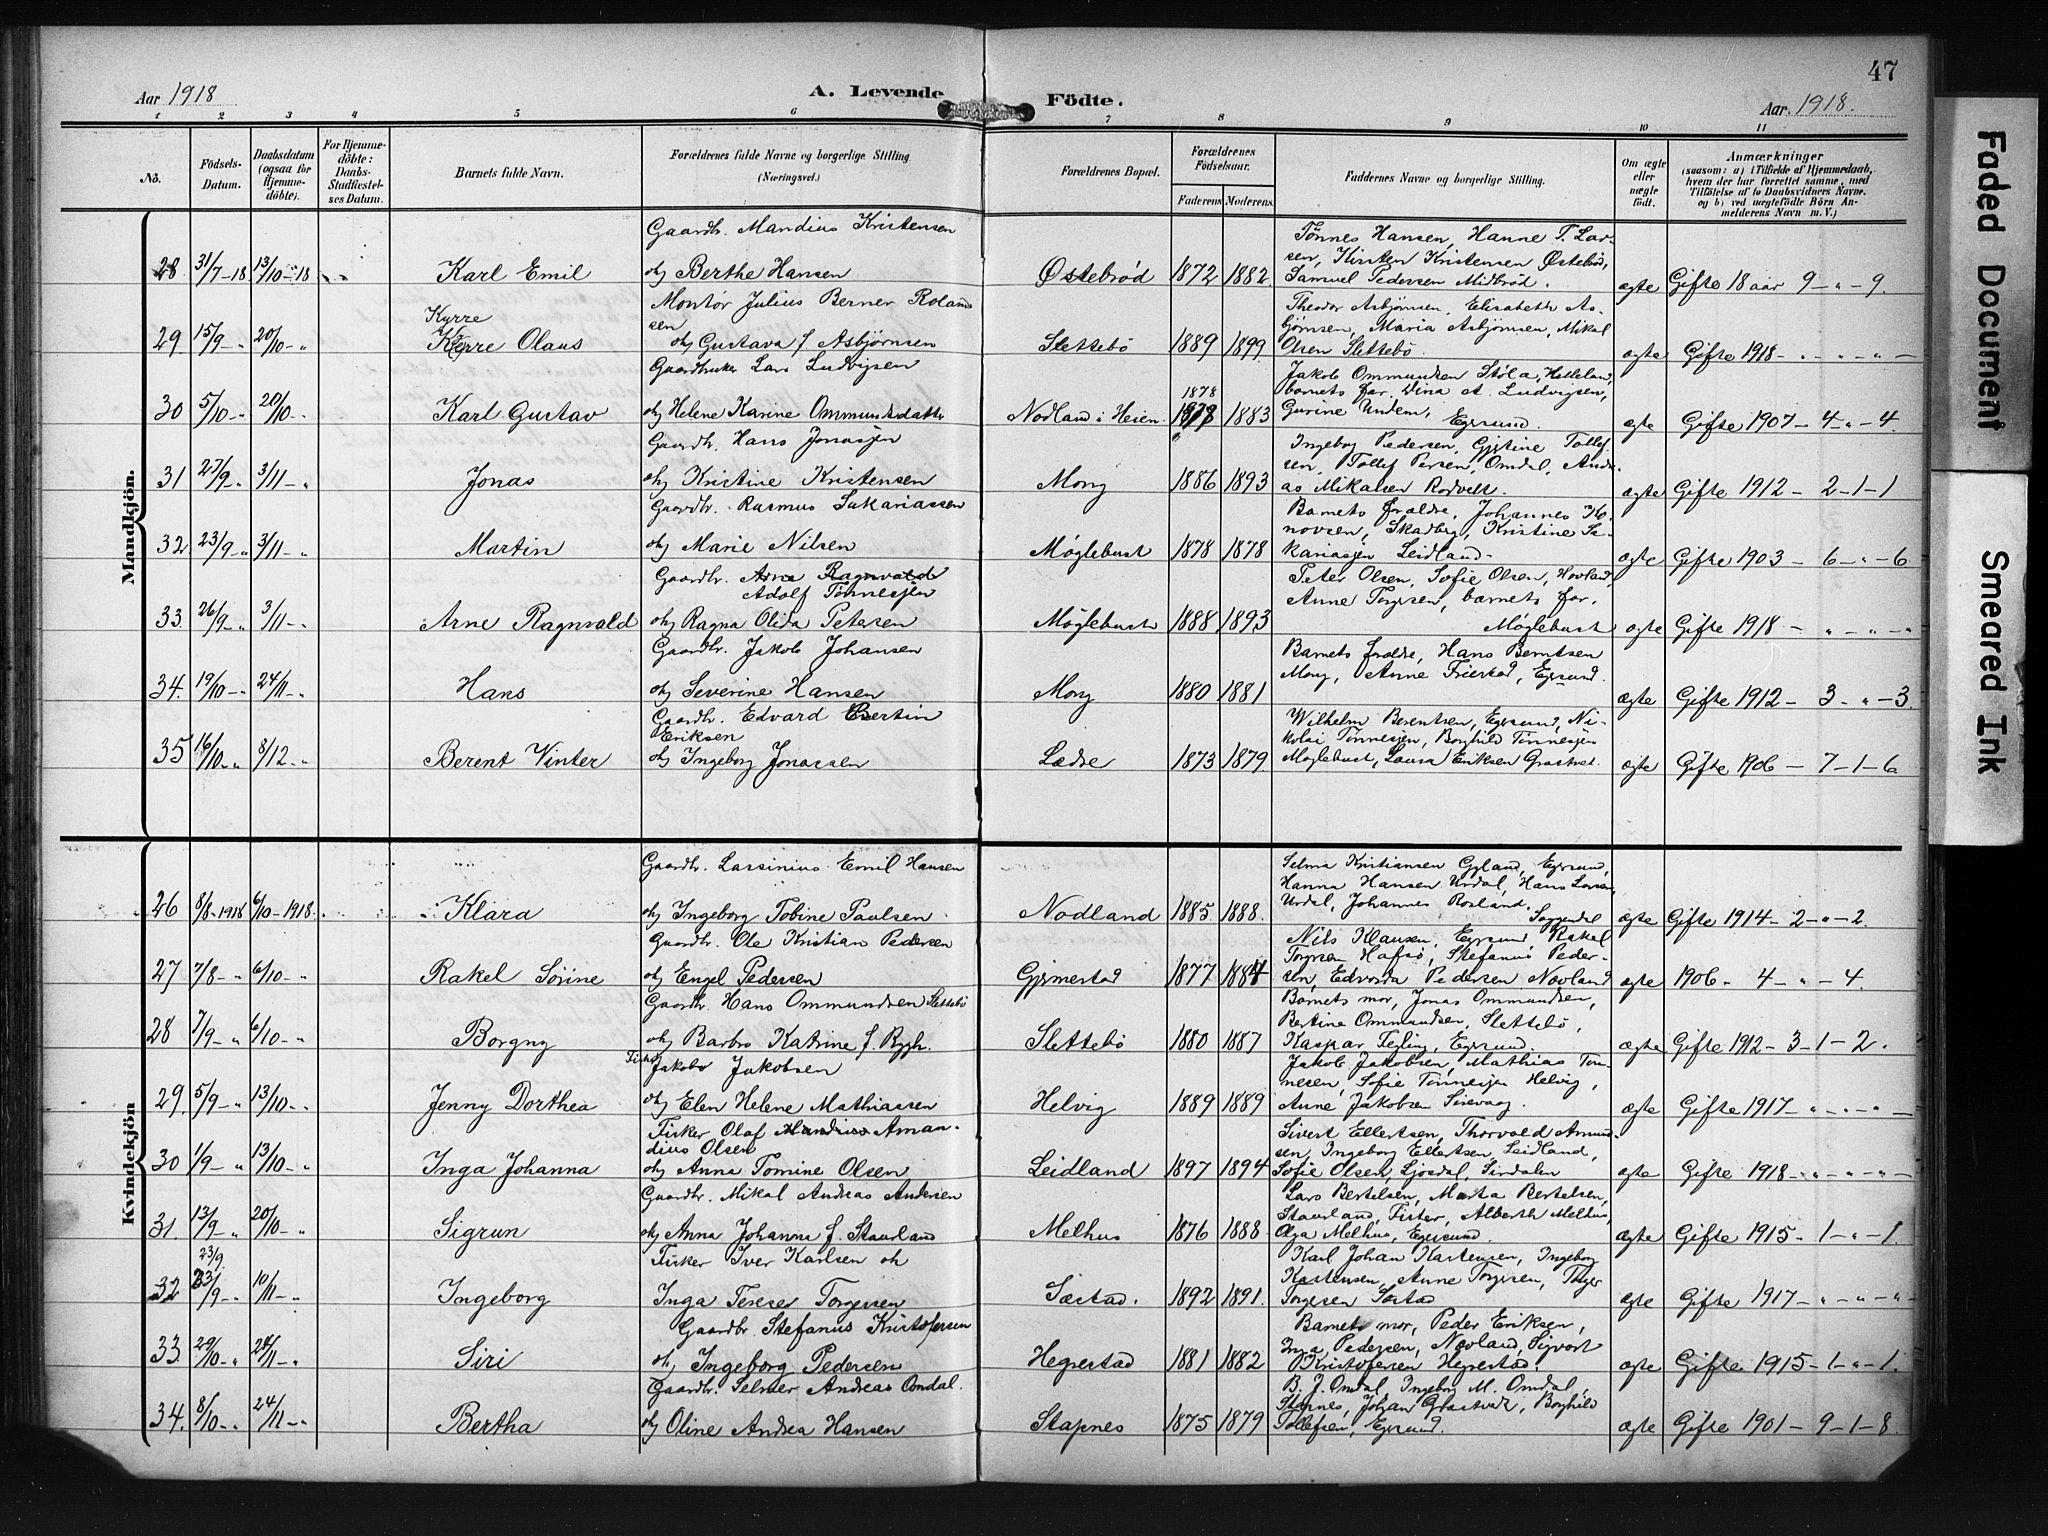 47
Aar 1918
A. Levende
Födte.
Aar 1918.
1 2 3 4 5 6 7 8 9 10 11
No.
Födsels-Datum.
Daabsdatum (ogsaa for Hjemmedöbte).
For Hjemmedöbte: Daabs-Stadfæstelses Datum.
Barnets fulde Navn.
Forældrenes fulde Navne og borgerlige Stilling (Næringsvei.)
Forældrenes Bopæl.
Forældrenes Födselsaar.
Faderens. Moderens.
Faddernes Navne og borgerlige Stilling.
Om ægte eller uægte födt.
Anmærkninger
(saasom: a) i Tilfælde af Hjemmedaab, hvem der har forrettet samme, med Tilföielse af to Daabsvidners Navne, og b) ved uægtefödte Börn Anmelderens Navn m. V.)
Mandkjön.
Gaardbr. Mandius Kristensen
28 31/7-18 13/10-18 Karl Emil
og Berthe Hansen
Østebrød 1872 1882
Tønnes Hansen, Hanne T. Lar-
sen, Kirsten Kristensen Østebrød,
Samuel Pedersen Midbrød.
ægte Gifte 18 aar 9 - " - 9.
Montør Julius Berner Roland
sen
Kyrre
29 15/9 - " 20/10 - " Kyrre Olaus
og Gustava f Asbjørnsen
Slettebö 1889 1899
Theodor Asbjørnsen, Elisabeth As-
bjørnsen, Maria Asbjørnsen, Mikal
Olsen Slettebö.
ægte Gifte 1918 - " - " - " -
Gaardbruker Lars Ludvigsen
30 5/10 - " 20/10 - Karl Gustav
og Helene Karine Ommundsdatter
Nodland i Heien. 1878 1883
Jakob Ommundsen Stöla, Helleland,
barnets far, Dina A. Ludvigsen,
Gurine Undem, Egersund.
ægte Gifte 1907 - 4 - " - 4.
Gaardbr. Hans Jonasjen
31 27/9 - " 3/11 - " Jonas
og Kristine Kristensen
Mong 1886 1893
Ingeborg Pedersen, Gjstine Tollef-
sen, Tollef Persen, Omdal, Andre-
as Mikalsen Rodvelt.
ægte Gifte 1912 - 2 - 1 - 1
Gaardbr. Rasmus Sakariassen
32. 23/9 - " 3/11 - " Martin
og Marie Nilsen
Møglebust 1878 1878
Barnets forældre, Johannes Ko-
novsen, Skadberg, Kristine Sa-
kariasjen Leidland.
ægte Gifte 1903 - 6 - " - 6
Gaardbr. Arne Ragnvald
Adolf Tönnesjen
33. 26/9 - " 3/11 - " Arne Ragnvald
og Ragna Olida Petersen
Møglebust 1888 1893
Peter Olsen, Sofie Olsen, Hovland,
Anne Torgersen, barnets far.
Møglebust
ægte Gifte 1918 - " - " - "
Gaardbr. Jakob Johansen
34. 19/10 - " 24/11 - " Hans
og Severine Hansen
Mong 1880 1881
Barnets forældre, Hans Berntsen
Mong, Anne Freestad, Egersund.
ægte Gifte 1912 - 3 - " - 3
Gaardbr. Edvard Bertin
Eriksen
35 16/10 - " 8/12 - " Berent Winter
og Ingeborg Jonassen
Lædre 1873 1879
Wilhelm Berentsen, Egersund, Ni-
kolai Tönnesjen, Borghild Tönnesjen
Møglebust, Laura Eriksen Grastvet.
ægte Gifte 1906 - 7 - 1 - 6
Kvindekjön
Gaardbr. Lassinius Emil Hansen
26 8/8-1918 6/10-1918. Klara
og Ingeborg Tobine Paulsen
Nodland 1885 1888
Selma Kristiansen Gyland, Egersund,
Hanna Hansen Urdal, Hans Larsen
Urdal, Johannes Rosland,
Soggendal
ægte Gifte 1914 - 2 - " - 2.
Gaardbr. Ole Kristian Pedersen
27 7/8 - " 6/10 - " Rakel Sofine
og Engel Pedersen
Gjermestad 1877 1884
Nils Klausen, Egersund, Rakel
Torgersen Hafsö, Stefanus Peder-
sen, Edvarda Pedersen Novland
ægte 1906 - 4 - " - 4.
Gaardbr. Hans Ommundsen Slettebö
28 7/9 - " 6/10 - " Borgny
og Barbro Katrine f. Rygh.
Slettebö 1880 1887
Barnets mor, Jonas Ommundsen,
Bertine Ommundsen, Slettebö,
Kaspar Tegling, Egersund.
ægte Gifte 1912 - 3 - 1 - 2.
Fisker
Jakob Jakobsen
29. 5/9 - " 13/10 - " Jenny Dorthea
og Elen Helene Mathiassen
Helvig 1889 1889
Jakob Jakobsen, Mathias Tön-
nesen, Sofie Tönnesjen Helvig,
Anne Jakobsen Sirevaag.
ægte Gifte 1917 - " - " - " -
Fisker Olaf Mandius Aman-
dius Olsen
30 1/9 - " 13/10 - " Inga Johanna
og Anna Tomine Olsen
Leidland 1897 1894
Sivert Ellertsen, Thorvald Amund-
sen, Ingeborg Ellertsen, Leidland,
Sofie Olsen, Ljosdal, Sirdalen
ægte Gifte 1918 - " - " - " -
Gaardbr. Mikal Andreas Andersen
31. 13/9 - " 20/10 - " Sigrun
og Anna Johanna f. Staurland
Melhus 1876 1888
Lars Bertelsen, Marta Bertelsen,
Staurland, Fister, Alberth Melhus,
Olga Melhus, Egersund.
ægte Gifte 1915 - 1 - " - 1.
23/9.
Fisker Iver Karlsen og
32 23/9 - " 10/11 - " Ingeborg
Inga Tereser Torgersen
Sæstad. 1892 1891.
Karl Johan Karstensen, Ingeborg
Karstensen, Anne Torgersen, Torger
Torgersen Sæstad
ægte Gifte 1917 - " - " - " -
Gaardbr. Stefanus Kristofersen
33. 29/10 - " 24/11 - " Siri
og Ingeborg Pedersen
Hegrestad 1881 1882
Barnets mor, Peder Eriksen,
Inga Pedersen, Novland, Sigvart
Kristofersen Hegrestad.
ægte Gifte 1915 - 1 - " - 1.
Gaardbr. Selmer Andreas Omdal.
34. 8/10 - " 24/11 - " Bertha
og Oline Andrea Hansen
Stapnes 1875 1879
B. J. Omdal, Ingeborg M. Omdal,
Stapnes, Johan Grastvedt, Borghild
Tollefsen, Egersund.
ægte Gifte 1901 - 9 - 1 - 8
Faded Document
Smeared Ink